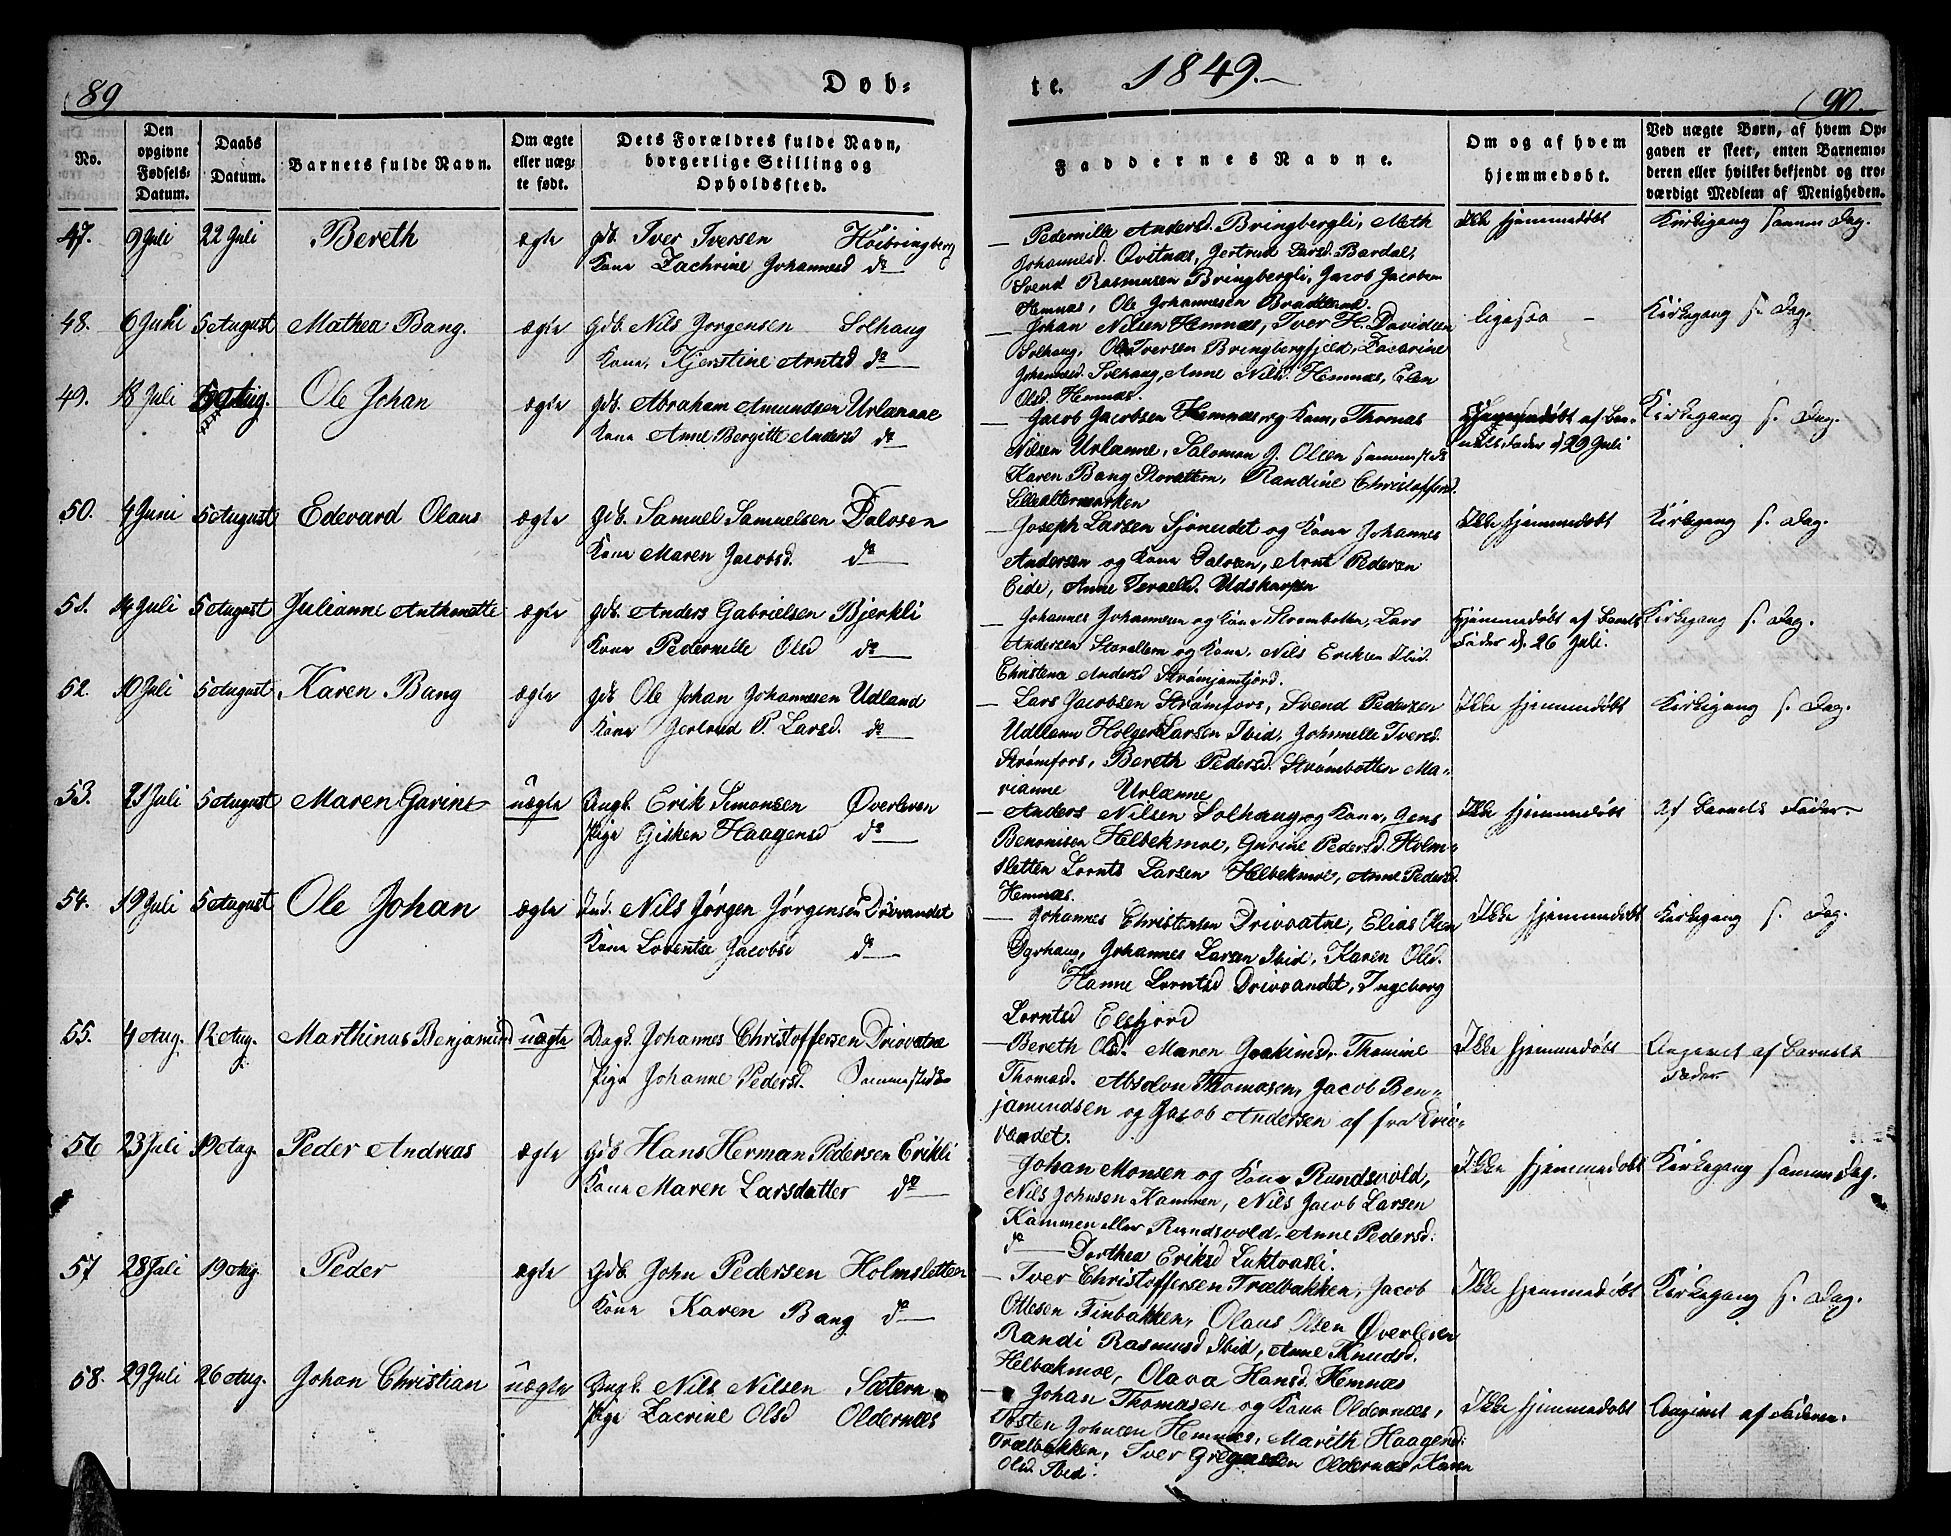 89 Døb=
te. 1849.— 90.
No.
Den opgivne Fødsels-Datum.
Daabs Datum.
Barnets fulde Navn.
Om ægte eller uægte født.
Dets Forældres fulde Navn, borgerlige Stilling og Opholdsfted.
Faddernes Navne.
Om og af hvem hjemmedøbt.
Ved uægte Børn, af hvem Opgaven er skeet, enten Barnemoderen eller hvilket bekjendt og troværdigt Medlem af Menigheden.
47. 9 Juli 22 Juli Bereth ægte Gdb. Iver Iversen Höibringberg
Kone Zachrine Johannesd do
— Pedernille Andersd. Bringbergli, Meth
Johannesd. Qvitnæs, Gertrud Larsd. Bardal,
Svend Rasmusen Bringbergli, Jacob Jacobsen
Hemnæs, Ole Johannesen Bradtland.
Ikke hjemmedøbt
Kirkegang samme Dag.
48. 6 Juli 5 August Mathea Bang. ægte Gdb. Nils Jørgensen Solhaug
Kone, Kjerstine Arntsd do
— Johan Nilsen Hemnæs, Iver H. Davidsen
Solhaug, Ole Iversen Bringbergfjeld, Zacarine
Johannesd. Solhaug, Anne Nilsd. Hemnæs, Elen
Olsd. Hemnæs.
ligesaa —
Kirkegang s. Dag.
49. 18 Juli Aug. Ole Johan ægte Gdb. Abraham Amundsen Urlænnæ
Kone Anne Bergitte Andersd do
— Jacob Jacobsen Hemnæs og Kone, Thomas
Nilsen Urlænne, Salomon J. Olsen sammesteds
Karen Bang Storalteren, Randine Christoffersd.
Lillealtermarken
Hjemmedøbt af Barnets Fader d 29 Juli
Kirkegang s. Dag.
50. 4 Juni 5 August Edevard Olaus ægte Gdb. Samuel Samuelsen Dalosen
Kone Maren Jacobsd. do
— Joseph Larsen Sjoneidet og Kone Johannes
Andersen og Kone Dalosen, Arnt Pedersen
Eide, Anne Israelsd. Udskarpen
Ikke hjemmedøbt
Kirkegang s. Dag.
51. 14 Juli 5 August Julianne Anthonette ægte Gdb. Anders Gabrielsen Bjerkli
Kone Pedernille Olsd do
— Johannes Johannesen og Kone Strømbotten, Lars
Andersen Storaltern og Kone, Nils Eriksen Ibid.
Christena Andersd Strømjamfjord.
Hjemmedøbt af Barnets
Fader d. 26 Juli.
Kirkegang s. Dag.
52. 10 Juli 5 August Karen Bang ægte Gdb Ole Johan Johannesen Udland
Kone Gertrud P. Larsd. do
— Lars Jacobsen Strømfors, Svend Pedersen
Udlænn Holger Larsen Ibid, Johnnelle Iversd.
Strømfors, Bereth Pedersd. Strømbotten Ma-
rianne Urlænne
Ikke hjemmedøbt
Kirkegang s. Dag.
53. 21 Juli 5 August Maren Gurine uægte Ungk. Erik Simonsen Øverleren
Pige Gisken Haagensd do
— Anders Nilsen Solhaug og Kone, Jens
Benonisen Helbekmoe, Gurine Pedersd. Holm-
sletten Lornts Larsen Helbekmoe, Anne Pedersd.
Hemnæs.
Ikke hjemmedøbt
Af Barnets Fader
54. 19 Juli 5 August Ole Johan ægte Ind. Nils Jørgen Jørgensen Drivvandet
Kone Lorentse Jacobsd do
— Johannes Christensen Drivvatne, Elias Olsen
Dyrhaug, Johannes Larsen Ibid, Karen Olsd.
Hanne Lorntsd Drivvandet, Ingeborg
Lorntsd Elsfjord
Ikke hjemmedøbt
Kirkegang s. Dag.
55. 4 Aug. 12 Aug. Marthinus Benjamind uægte Ungk. Johannes Christoffersen Drivvatne
Pige Johanne Pedersd. Sammesteds
— Bereth Olsd. Maren Joakimsd. Thomine
Thomasd. Absalon Thomasen, Jacob Ben-
jamindsen og Jacob Andersen af fra Driv-
vandet.
Ikke hjemmedøbt
Angivet af Barnets
Fader
56 23 Juli 19 Aug. Peder Andreas ægte Gdb Hans Herman Pedersen Erikli
Kone Maren Larsdatter do
Johan Monsen og Kone Rundsvold,
Nils Johnsen Kammen, Nils Jacob Larsen
Kammen eller Rundsvold, Anne Pedersd.
do — Dorthea Eriksd Luktvasli.
Ikke hjemmedøbt
Kirkegang samme Dag.
57 28 Juli 19 Aug. Peder ægte Gdb. John Pedersen Holmsletten
Kone Karen Bang do
— Iver Christoffersen Trælbakken, Jacob
Ottesen Finbakken, Olaus Olsen Øverleren
Randi Rasmusd Ibid, Anne Knudsd.
Helbækmoe, Olava Hansd. Hemnæs
Ikke hjemmedøbt
Kirkegang s. Dag.
58. 29 Juli 26 Aug. Johan Christian uægte Ungk. Nils Nilsen Sætern
Pige Zacrine Olsd Oldernæs
— Johan Thomasen og Kone Oldernæs,
Tosten Johnsen Hemnæs, Marith Haagensd.
Trælbakken, Iver Gregusen Oldernæs, Karen
Olsd. Ibid.
Ikke hjemmedøbt
Angivet af Faderen.